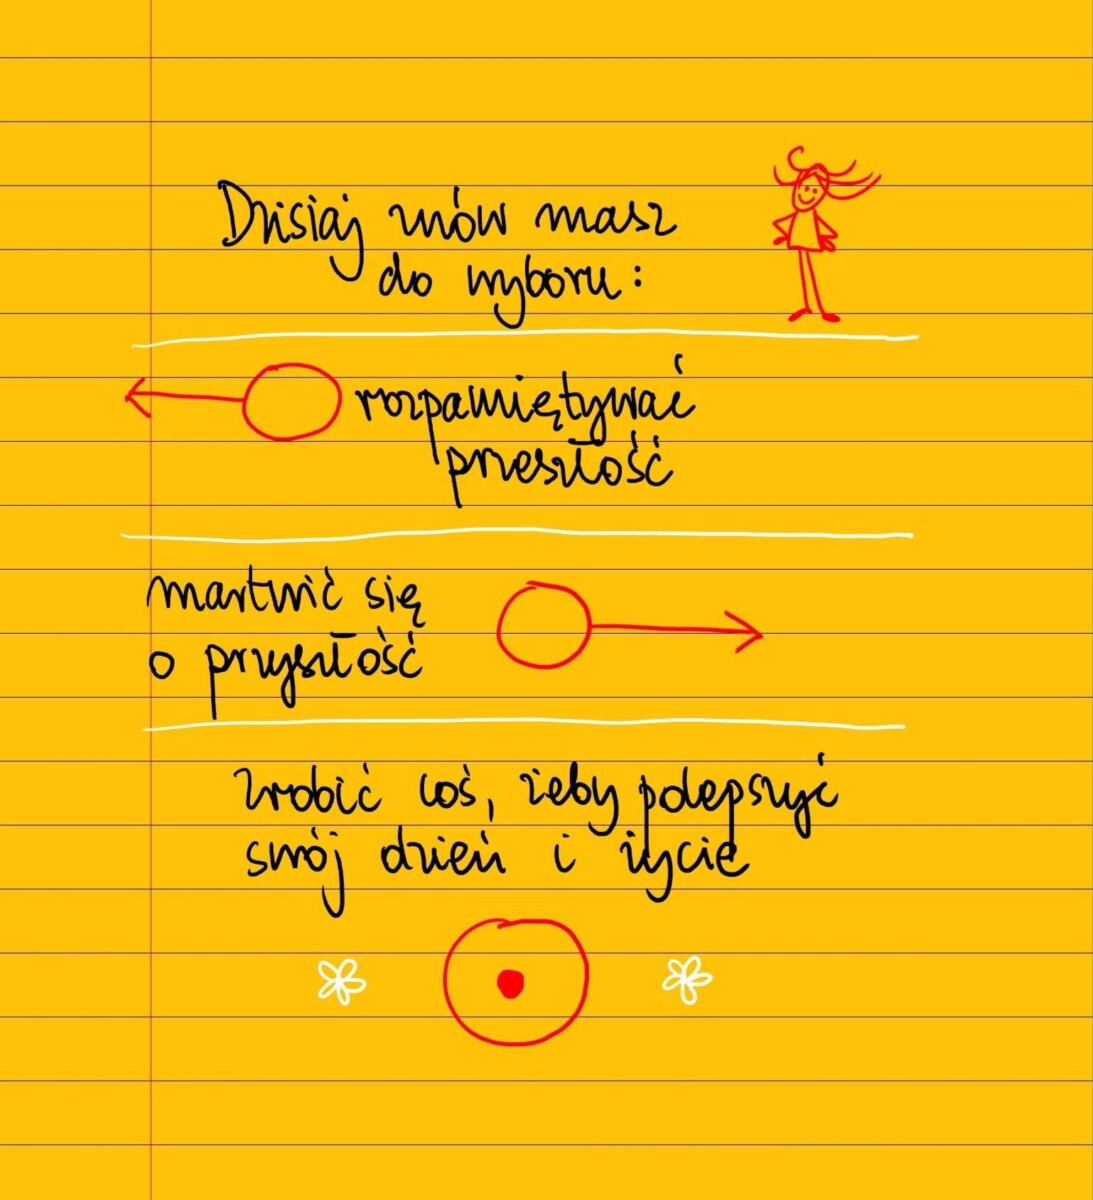 Dzisiaj znów masz
do wyboru:
rozpamiętywać
przeszłość
martwić się
o przyszłość
zrobić coś, żeby polepszyć
swój dzień i życie